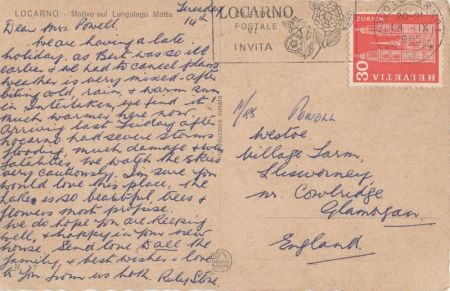 LOCARNO - Motivo sul Lungolago Motta
Tuesday
14th
Dear Mrs Powell.
We are having a late
holiday, as Bert was so ill
earlier & we had to cancel plans
weather is very mixed - after
biting cold, rain, & warm sun
in Interlaken, we find it
much warmer here now.
Arriving last Tuesday after
Locarno had severe storms
flooding, much damage & two
fatalities, we watch the skies
very cautiously. I'm sure you
would love this place, the
Lake is so beautiful trees &
flowers most profuse.
We do hope you are keeping
well, & happy in your new
house. Send love to all the
family, & best wishes & love
to you from us both. Ruby
LOCARNO
POSTALE
INVITA
ZÜRICH
30
HELVETIA
Mrs Powell
Westoe.
Village Farm,
Llysworney
nr. Cowbridge
Glamorgan.
England.